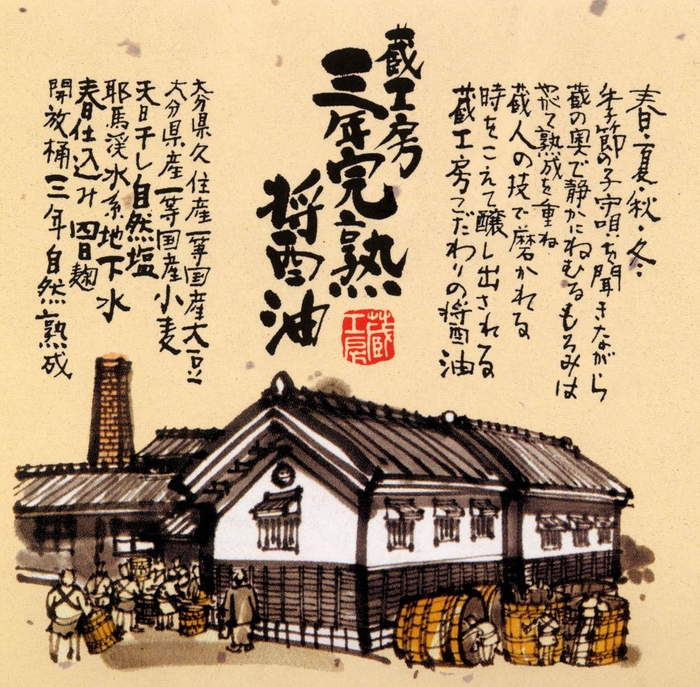 春・夏・秋・冬・
季節の子守唄を聞きながら
蔵の奥で静かにねむるもろみは
やがて熟成を重ね
蔵人の技で磨かれる
時をこえて醸し出される
蔵工房こだわりの醤油
蔵工房
三年完熟
醤油
蔵工房
大分県久住産一等国産大豆
大分県産一等国産小麦
天日干し自然塩
耶馬渓水系地下水
春仕込み 四日麹
開放桶 三年自然熟成